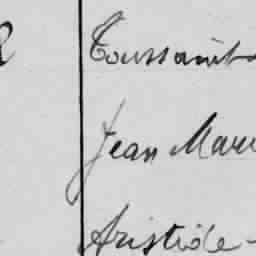 Toussaint
Jean Mari
Aristide